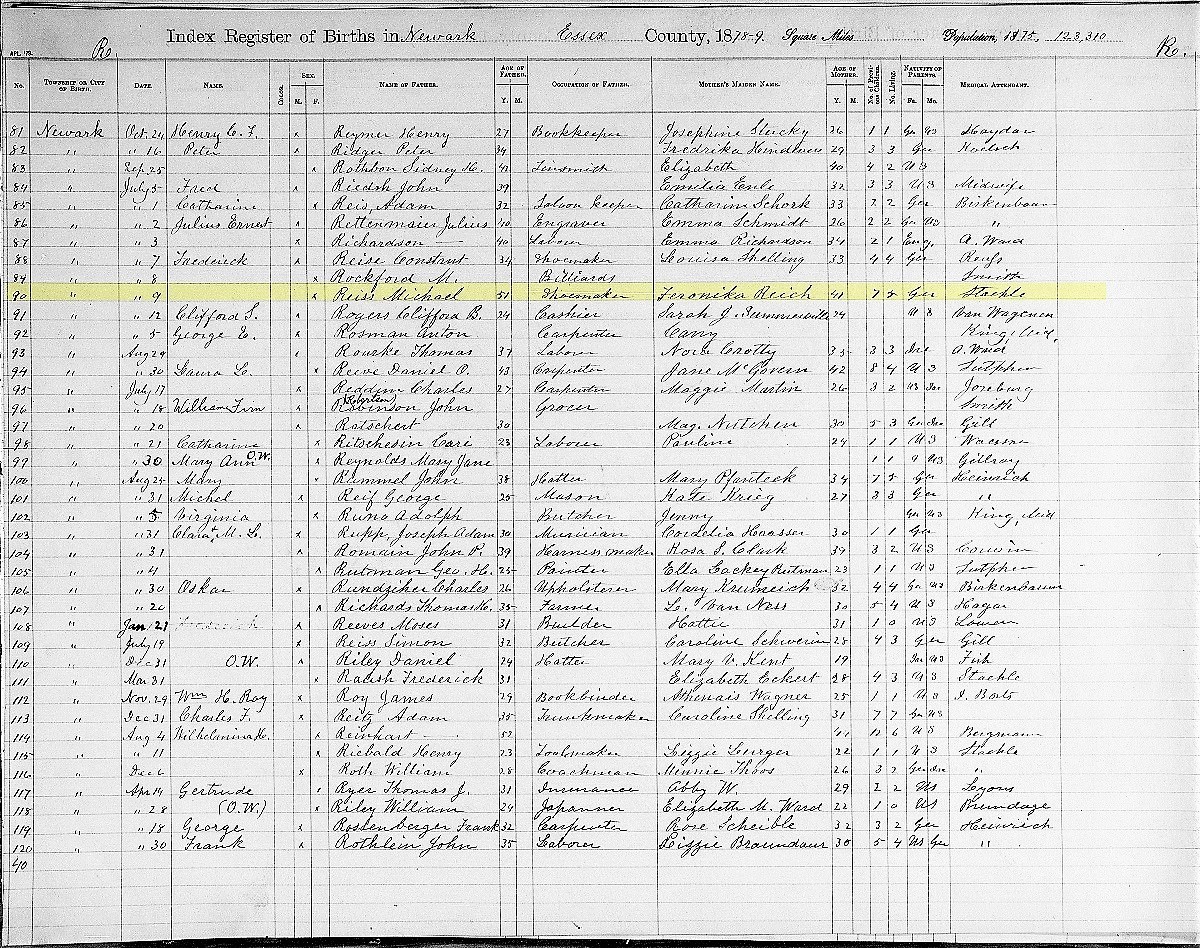 Index Register of Births in Newark Essex County, 1878-9. Square Miles Population, 1875, 123,310
APL. '78. Ro. Ro.
No. TOWNSHIP OR CITY OF BIRTH. DATE. NAME. COLOR. SEX. M. F. NAME OF FATHER. AGE OF FATHER. Y. M. OCCUPATION OF FATHER. MOTHER'S MAIDEN NAME. AGE OF MOTHER. Y. M. No. of Previous Children. No. Living. NATIVITY OF PARENTS. Fa. Mo. MEDICAL ATTENDANT.
81 Newark Oct. 24 Henry C. F. x Reymer Henry 27 Bookkeeper Josephine 26 1 1 Ger US Haydon
82 " " 16 Peter x Ridger Peter 34 Fredrika 29 3 3 Ger
83 " Sep. 25 x Rothbon Sidney H. 41 Tinsmith Elizabeth 40 4 2 U S
84 " July 5 Fred x Riedsh John 39 Emilia Enle 32 3 3 U S Midwife
85 " " 1 Catharine x Reis, Adam 32 Saloon keeper Catharin Schork 33 2 2 Ger Birkenbaum
86 " " 2 Julius Ernest x Rettenmaier Julius 40 Engraver Emma Schmidt 26 2 2 Ger US "
87 " " 3 x Richardson — 40 Laborer Emma Richardson 34 2 1 Eng. A. Ward
88 " " 7 Frederick x Reise Constant 34 Shoemaker Louisa Shelling 33 4 4 Ger
84 " " 8 x Rockford M. Billiards Smith
90 " " 9 x Reiss Michael 51 Shoemaker Feronika Reich 41 7 5 Ger Staehle
91 " " 12 Clifford S. x Rogers Clifford B. 24 Cashier Sarah J. Summerville 24 U S Van Wagenen
92 " " 5 George E. x Rosman Anton Carpenter Carry King, Mid.
93 " Aug 29 Rourke Thomas 37 Laborer Nora Crotty 35 3 3 Ire A. Ward
94 " " 30 Laura L. x Reeve Daniel O. 43 Carpenter Jane McGovern 42 8 4 U S Sutphen
95 " July 17 x Reddin Charles 27 Carpenter Maggie Martin 26 3 2 US Ire
96 " " 18 William Tim x Robinson (Robertson) John Grocer Smith
97 " " 20 x Ratschert 30 Mag. Nutchen 30 5 3 Gill
98 " " 21 Catharine x Ritschesin Cari 23 Laborer Pauline 24 1 1 U S
99 " " 30 Mary Ann O.W. x Reynolds Mary Jane 1 1 US Gillroy
100 " Aug 24 Mary x Rummel John 38 Hatter Mary Pfanteck 34 7 5 Ger Heinrich
101 " " 31 Michel x Reif George 25 Mason Kate Krieg 27 3 3 Ger "
102 " " 5 Virginia x Runo Adolph Butcher Jenny Ger US King, Mid
103 " " 31 Clara M. L. x Rupp, Joseph Adam 30 Musician Cordelia Haasser 30 1 1 Ger
104 " " 31 x Romain John P. 39 Harness maker Rosa S. Clark 39 3 2 U S
105 " " 4 x Rutman Geo. H. 25 Painter Ella Lackey Rutman 23 1 1 U S Sutphen
106 " " 30 Oskar x Rundziher Charles 26 Upholsterer Mary Krumeich 32 4 4 Ger US Birkenbaum
107 " " 20 x Richards Thomas H. 35 Farmer L. Van Ness 30 5 4 U S Hagar
108 " Jan 21 Frederick x Reeves Moses 31 Builder Hattie 31 1 0 U S
109 " July 19 x Reiss Simon 32 Butcher Caroline Schwerin 28 4 3 Ger Gill
110 " Dec 31 O.W. x Riley Daniel 24 Hatter Mary V. Kent 19 Ire US Fish
111 " Mar 31 x Radish Frederick 31 Elizabeth Eckert 28 4 3 U S Staehle
112 " Nov. 29 Wm H. Roy x Roy James 29 Bookbinder Athenais Wagner 25 1 U S
113 " Dec 31 Charles F. x Reitz Adam 35 Trunkmaker Caroline Shelling 31 7 7 Ger US
114 " Aug 4 Wilhelmina H. x Reinhart — 52 41 12 6 U S Bergmann
115 " " 11 x Riebald Henry 23 Toolmaker Lizzie Lurger 22 1 1 U S Staehle
116 " Dec 6 x Roth William 28 Coachman Minnie Thoos 26 3 2 "
117 " Apr 14 Gertrude x Ryer Thomas J. 31 Insurance Abby W. 29 2 2 US Lyons
118 " " 28 (O.W.) x Riley William 24 Japanner Elizabeth M. Ward 22 1 0 US Brundage
119 " " 18 George x Rostenberger Frank 32 Carpenter Rose Scheible 32 3 2 Ger Heinrich
120 " " 30 Frank x Rothlein John 35 Laborer Lizzie Braundaur 30 5 4 US Ger "
40